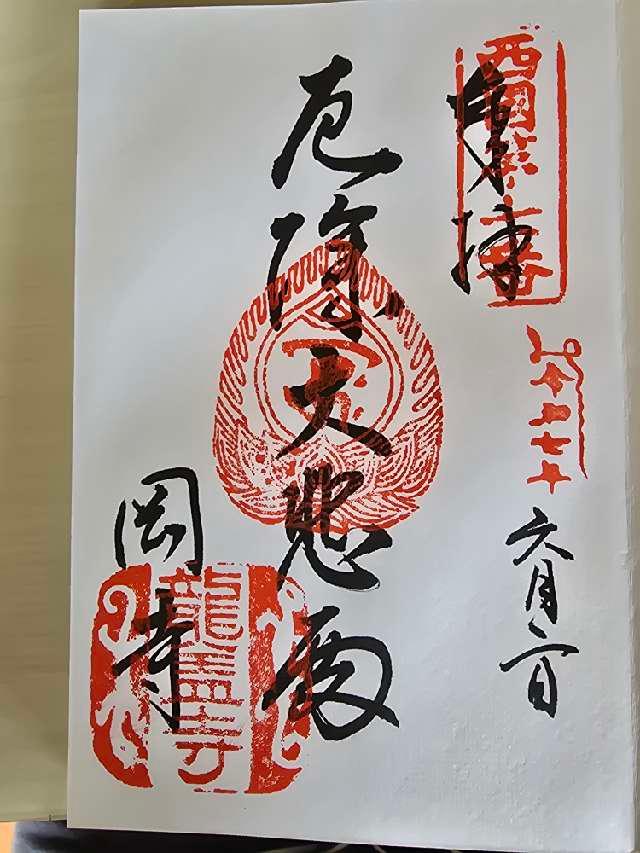 西国第七番
奉拝
六月二日
厄除大悲殿
岡寺
龍蓋寺